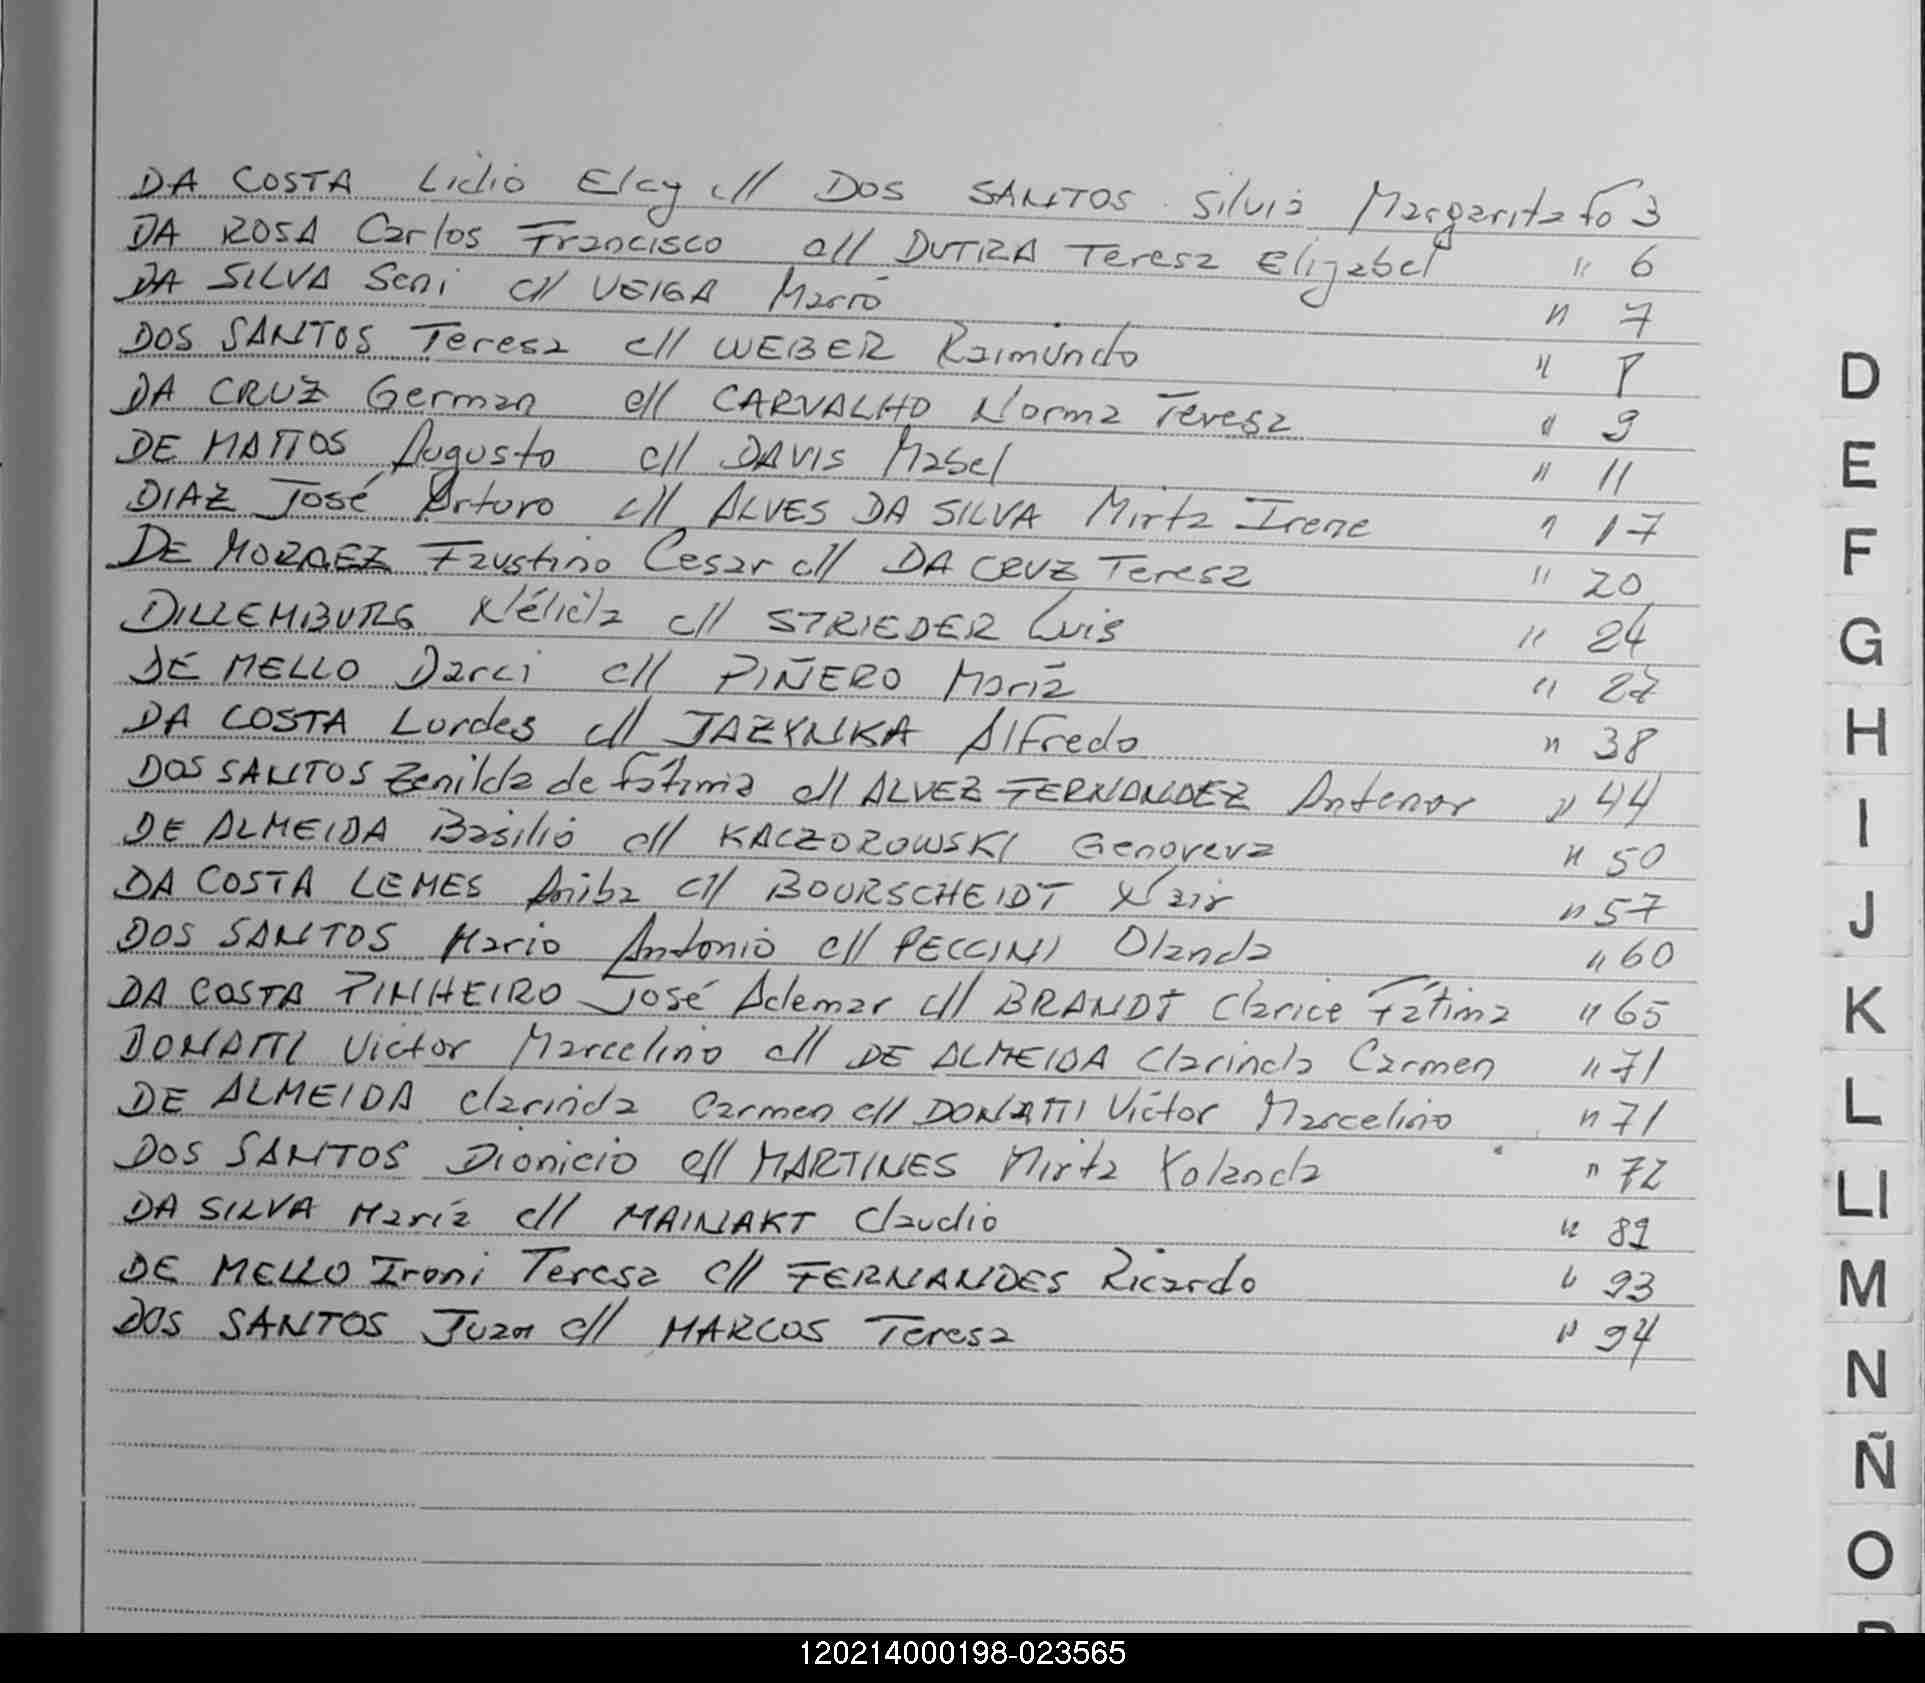 DA COSTA Lidio Elcy c// DOS SANTOS Silvia Margarita fo 3
DA ROSA Carlos Francisco c// DUTRA Teresa Elizabet " 6
DA SILVA Seni c// VEIGA Mario " 7
DOS SANTOS Teresa c// WEBER Raimundo " 8
DA CRUZ German c// CARVALHO Norma Teresa " 9
DE MATTOS Augusto c// DAVIS Mabel " 11
DIAZ José Arturo c// ALVES DA SILVA Mirta Irene " 17
DE MORAEZ Faustino Cesar c// DA CRUZ Teresa " 20
DILLEMBURG Nélida c// STRIEDER Luis " 24
DE MELLO Darci c// PIÑERO María " 27
DA COSTA Lurdes c// JAZYNKA Alfredo " 38
DOS SANTOS Zenilda de Fátima c// ALVEZ FERNANDEZ Antenor " 44
DE ALMEIDA Basilio c// KACZOROWSKI Genoveva " 50
DA COSTA LEMES Aniba c// BOURSCHEIDT Nair " 57
DOS SANTOS Mario Antonio c// PECCINI Olanda " 60
DA COSTA PINHEIRO José Ademar c// BRANDT Clarice Fátima " 65
DONATTI Victor Marcelino c// DE ALMEIDA Clarinda Carmen " 71
DE ALMEIDA Clarinda Carmen c// DONATTI Victor Marcelino " 71
DOS SANTOS Dionicio c// MARTINES Mirta Yolanda " 72
DA SILVA María c// MAINAKT Claudio " 89
DE MELLO Ironi Teresa c// FERNANDES Ricardo " 93
DOS SANTOS Juan c// MARCOS Teresa " 94
D
E
F
G
H
I
J
K
L
Ll
M
N
Ñ
O
120214000198-023565